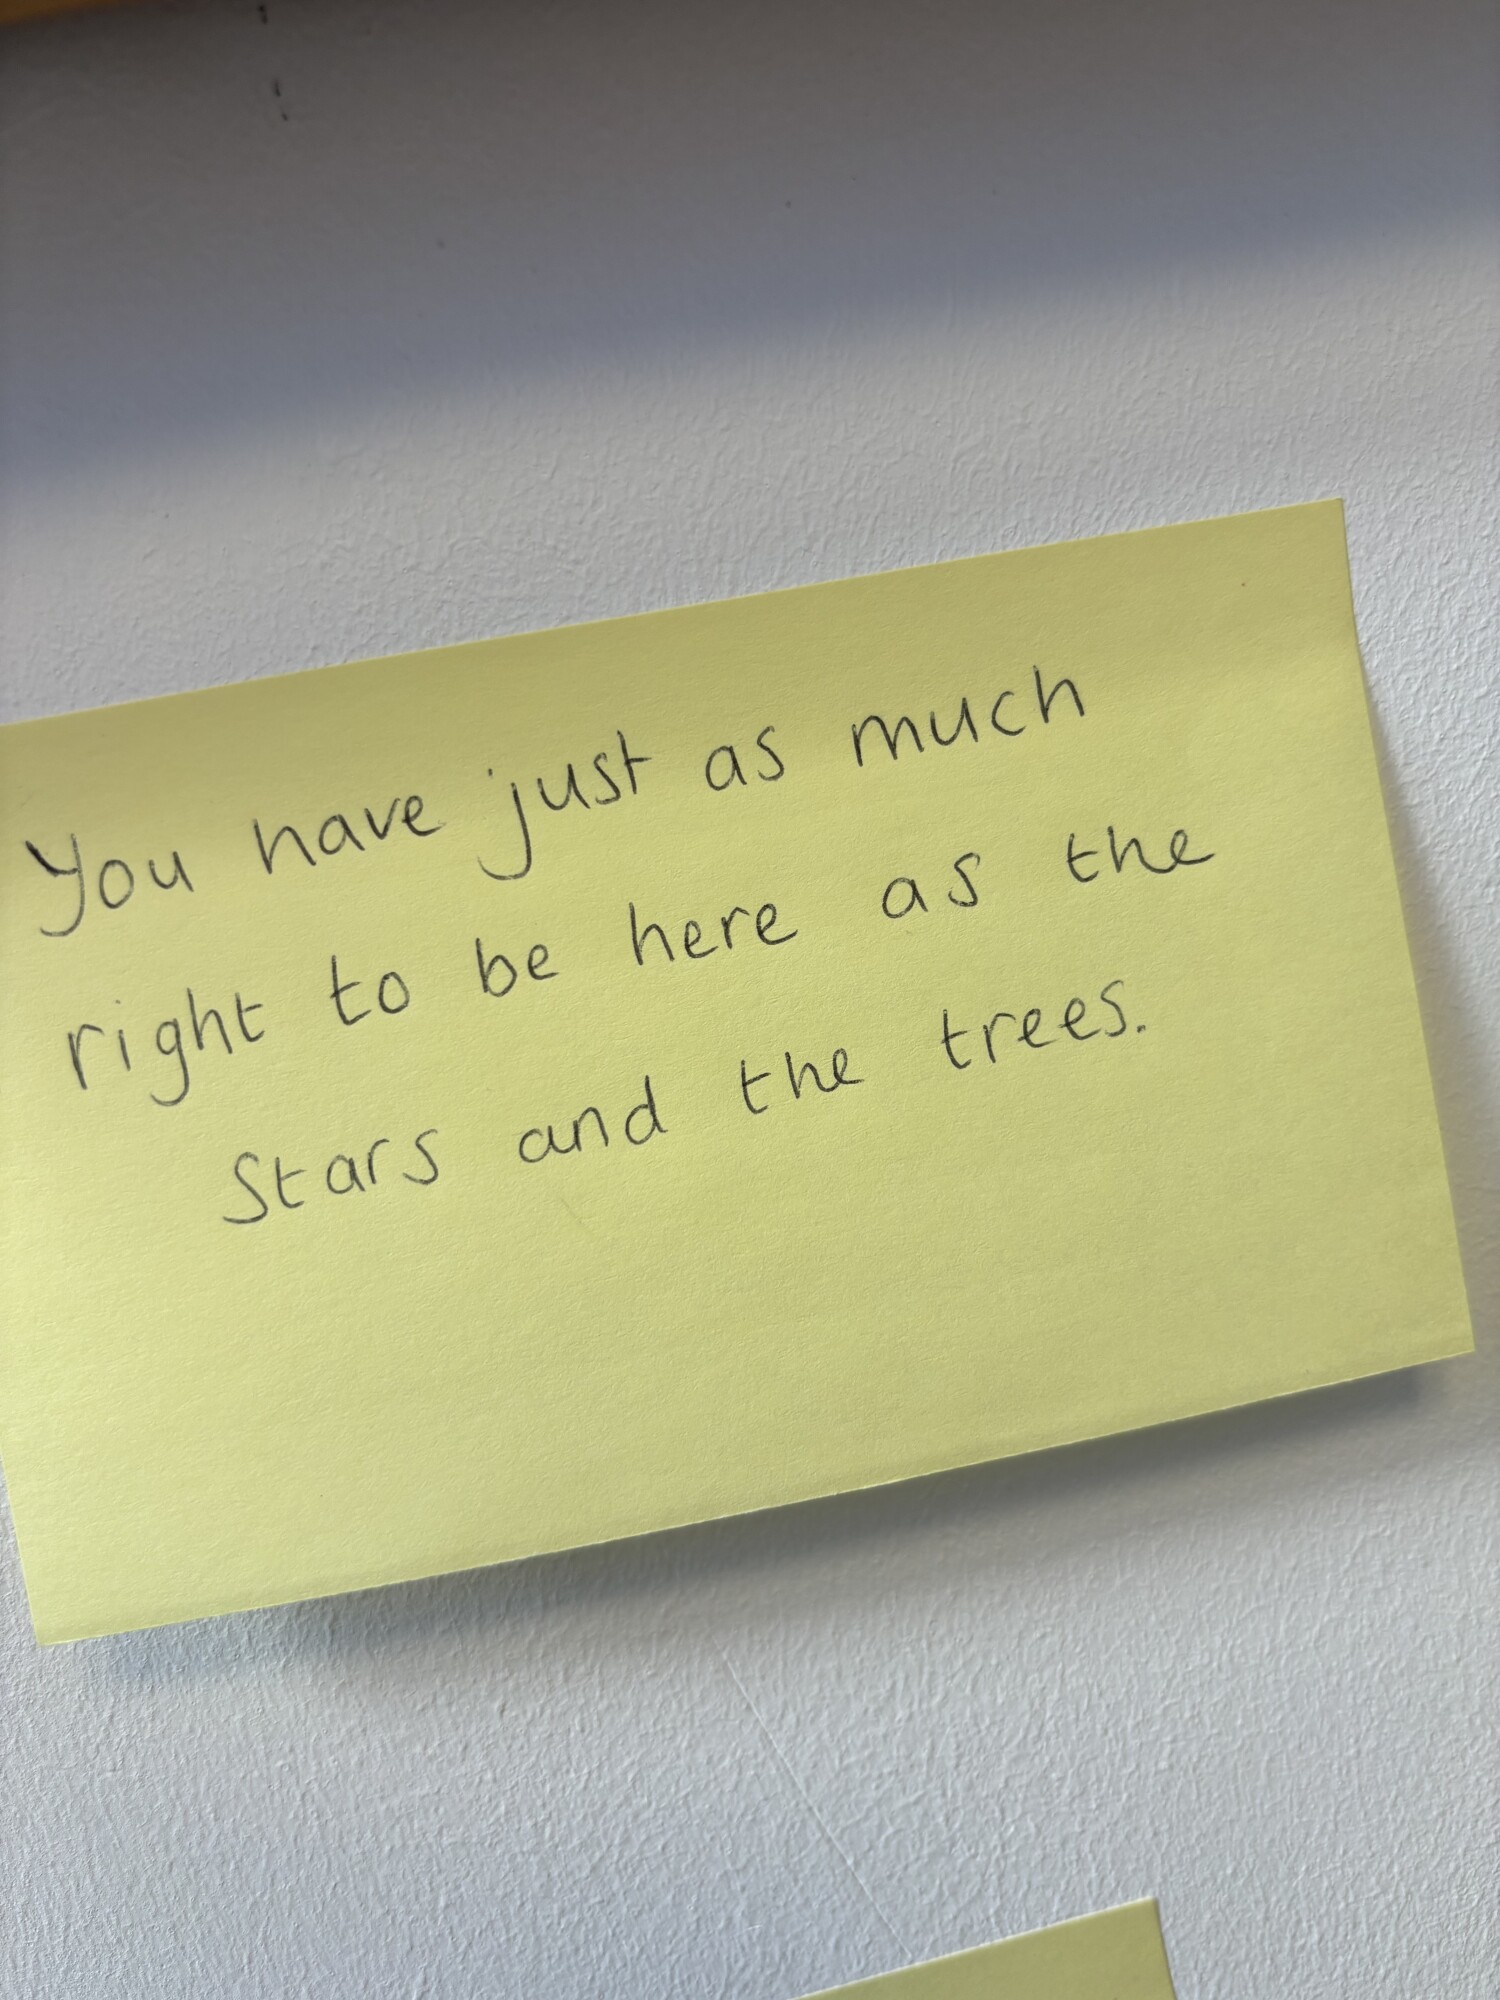 You have just as much
right to be here as the
Stars and the trees.